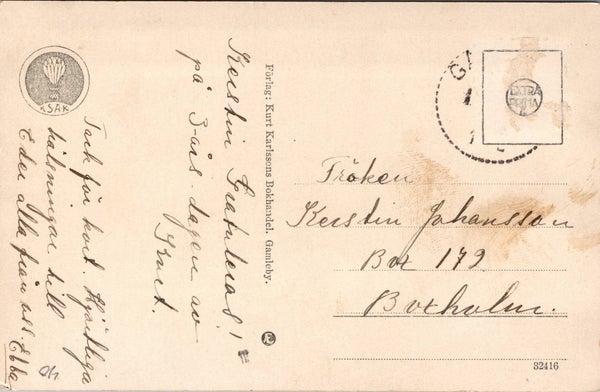 KSAK
Kerstin Gratuleras!
på 3-års-dagen av
Tack för kort Hjärtliga
hälsningar till
Eder alla från oss. Ebba
Förlag: Kurt Karlssons Bokhandel. Gamleby.
GA
EXTRA
PRIMA
Fröken
Kerstin Johansson
Box 179
Boxholm.
32416